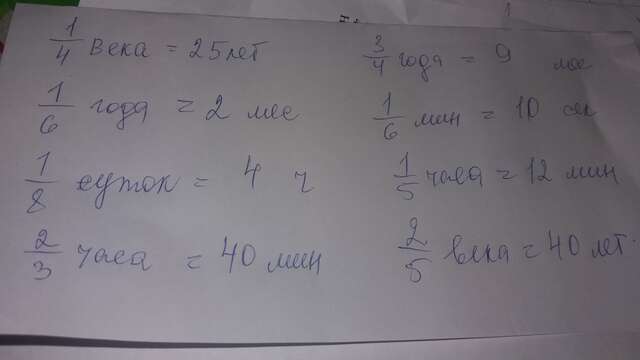 1/4 века = 25 лет
1/6 года = 2 мес
1/8 суток = 4 ч
2/3 часа = 40 мин
3/4 года = 9 мес
1/6 мин = 10 сек
1/5 часа = 12 мин
2/5 века = 40 лет.